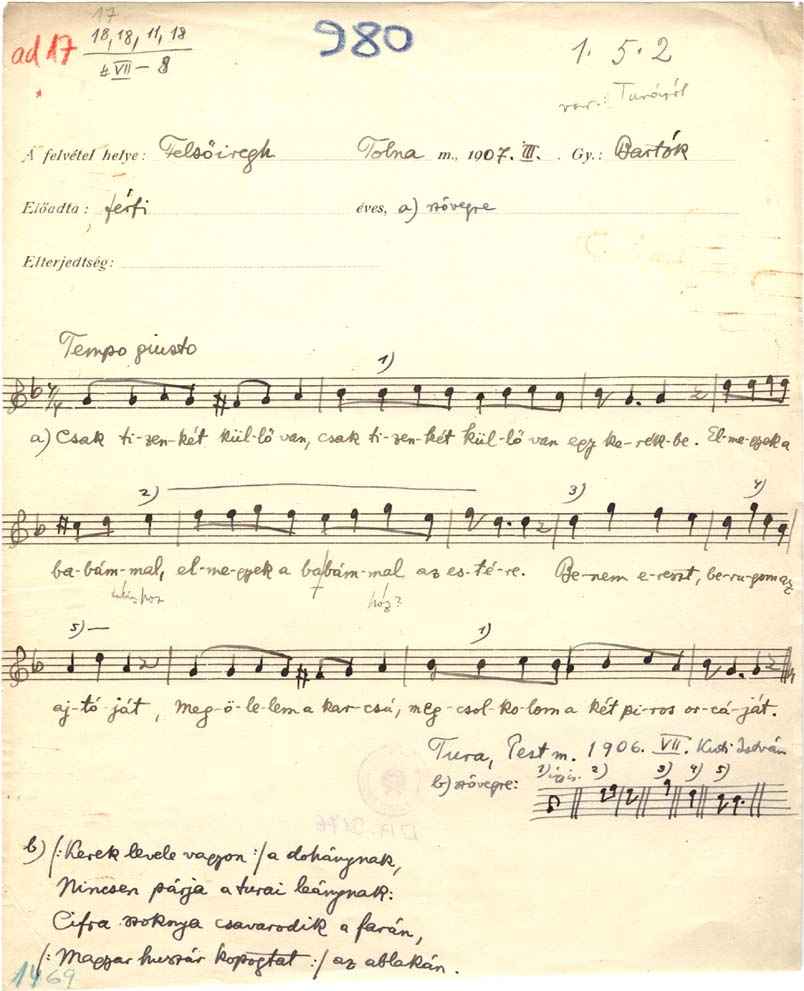 17
ad 17 18, 18, 11, 18
4 VII – 8
980
1. 5. 2
var.: Turáról
A felvétel helye: Felsőiregh Tolna m., 1907. III. Gy.: Bartók
Előadta: férfi éves, a) szövegre
Elterjedtség:
Tempo giusto
1)
a) Csak ti-zen-két kül-lő van, csak ti-zen-két kül-lő van egy ke-rék-be. El-me-gyek a
2) 3) 4)
ba-bám-mal, el-me-gyek a babám-mal az es-té-re. Be-nem e-reszt, be-ru-gom az
hoz?
5) 1)
aj-tó-ját, Meg-ö-le-lem a kar-csú, meg-csol-ko-lom a két pi-ros or-cá-ját.
Tura, Pest m. 1906. VII. Kuti István
b) szövegre: 1) 2) 3) 4) 5)
b) /: Kerek levele vagyon :/ a dohánynak,
Nincsen párja a turai leánynak:
Cifra szoknya csavarodik a farán,
/: Magyar huszár kopogtat :/ az ablakán.
1469